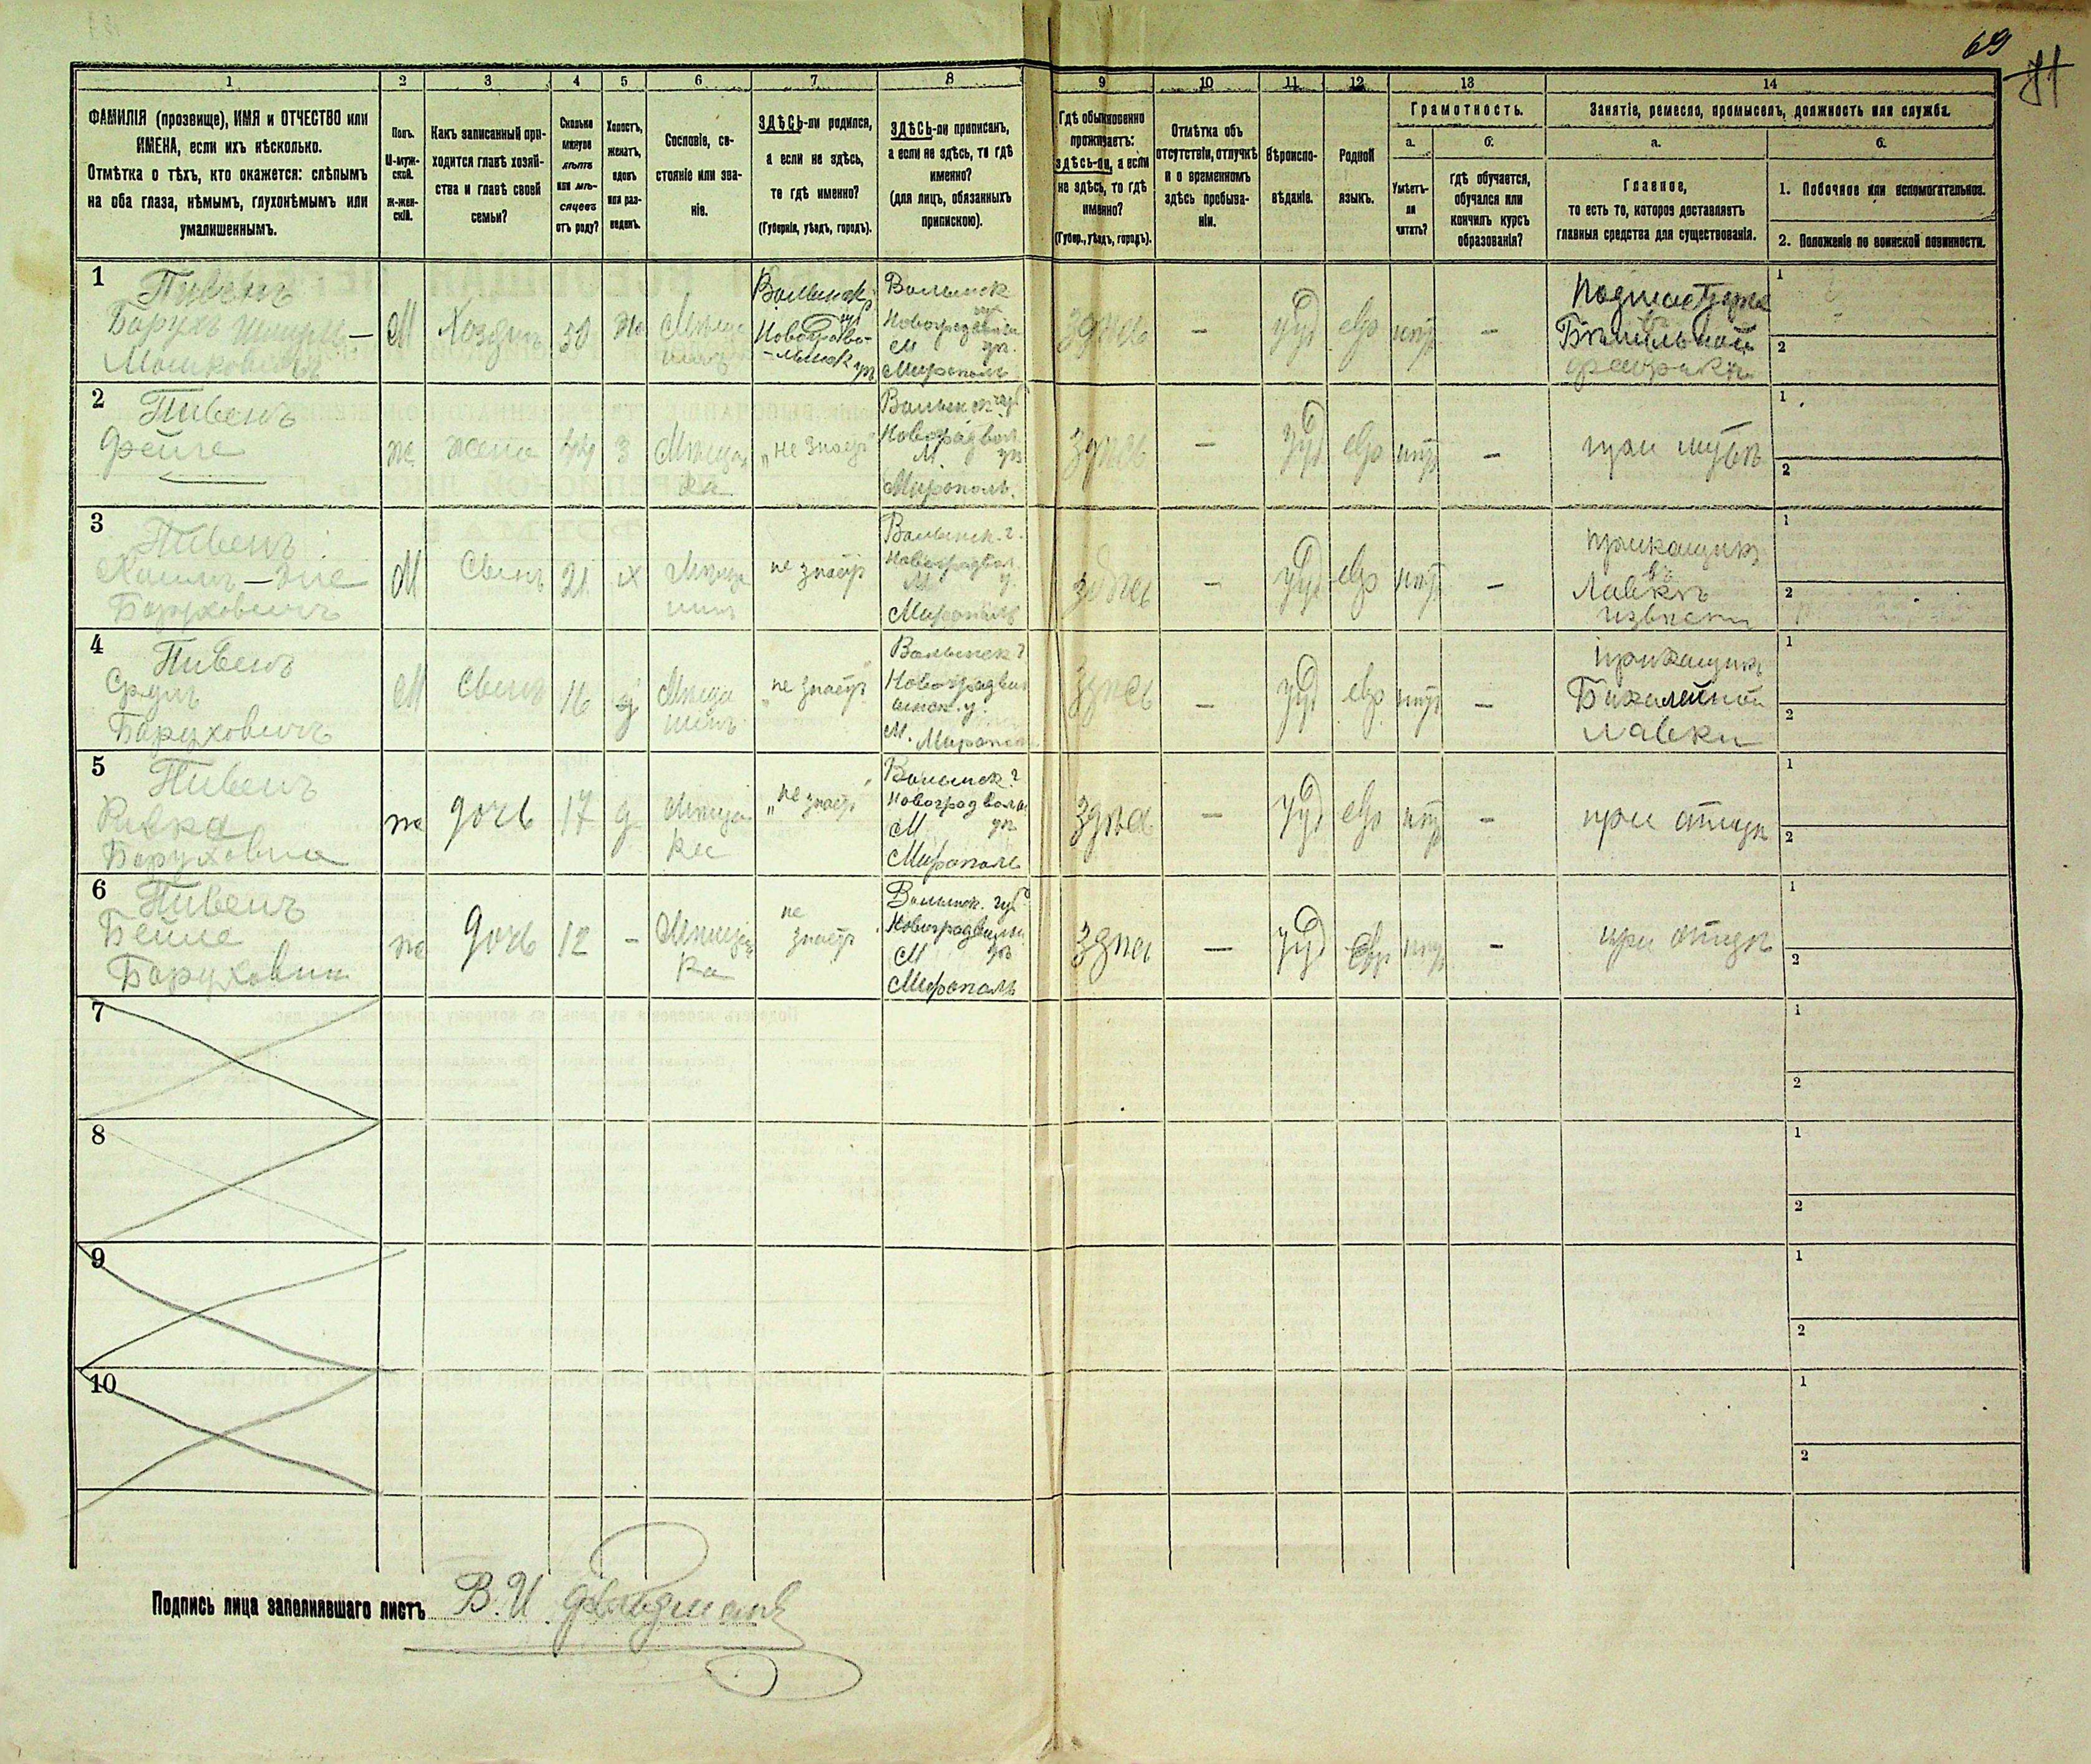 69
71
1 2 3 4 5 6 7 8 9 10 11 12 13 14
ФАМИЛІЯ (прозвище), ИМЯ и ОТЧЕСТВО или
ИМЕНА, если ихъ нѣсколько.
Отмѣтка о тѣхъ, кто окажется: слѣпымъ
на оба глаза, нѣмымъ, глухонѣмымъ или
умалишеннымъ.
Полъ.
М-муж-
ской.
Ж-жен-
скій.
Какъ записанный при-
ходится главѣ хозяй-
ства и главѣ своей
семьи?
Сколько
минуло
лѣтъ
или мѣ-
сяцевъ
отъ роду?
Холостъ,
женатъ,
вдовъ
или раз-
веденъ.
Сословіе, со-
стояніе или зва-
ніе.
ЗДѢСЬ-ли родился,
а если не здѣсь,
то гдѣ именно?
(Губернія, уѣздъ, городъ).
ЗДѢСЬ-ли приписанъ,
а если не здѣсь, то гдѣ
именно?
(для лицъ, обязанныхъ
припискою).
Гдѣ обыкновенно
проживаетъ:
здѣсь-ли, а если
не здѣсь, то гдѣ
именно?
(Губер., уѣздъ, городъ).
Отмѣтка объ
отсутствіи, отлучкѣ
и о временномъ
здѣсь пребыва-
ніи.
Вѣроиспо-
вѣданіе.
Родной
языкъ.
Грамотность.
а.
Умѣетъ-
ли
читать?
б.
гдѣ обучается,
обучался или
кончилъ курсъ
образованія?
Занятіе, ремесло, промыселъ, должность или служба.
а.
Главное,
то есть то, которое доставляетъ
главныя средства для существованія.
б.
1. Побочное или вспомогательное.
2. Положеніе по воинской повинности.
1
Пивень
Барухъ Шмуль-
Мошковичъ
М
Хозяинъ
50
Же
Мѣща
нинъ
Волынск.
Новоградво-
-лынск у.
Волынск
Новоградволын
М
Мирополь
здѣсь
—
Іуд
евр
нѣт
—
Подмастерье
Бѣлильной
фабрики
1
2
2
Пивень
Фейге
же
жена
44
З
Мѣщан
ка
„не знаетъ"
Волынск губ
Новоградвол.
М уѣ
Мирополь.
здѣсь
—
Іуд
евр
нѣт
—
при мужѣ
1
2
3
Пивень
Баруховичъ
М
Сынъ
21
х
Мѣща
нинъ
не знаетъ
Волынск. г.
Новоградвол.
М у.
Мирополь
здѣсь
—
Іуд
евр
нѣт
—
прикащикъ
въ
Лавкѣ
извести
1
2
4
Пивень
Сруль
Баруховичъ
М
Сынъ
16
Мѣща
нинъ
„не знаетъ"
Волынск г
Новоградвол
ынск. у.
М. Мирополь
здѣсь
—
Іуд
евр
нѣт
—
прикащикъ
Бакалейной
лавки
1
2
5
Пивень
Ривка
Баруховна
же
дочь
17
д
Мѣщан
ка
„не знаетъ"
Волынск г
Новоградволын
М уѣ
Мирополь
здѣсь
—
Іуд
евр
нѣт
—
при отцѣ
1
2
6
Пивень
Бейле
Баруховна
же
дочь
12
-
Мѣщан
ка
не
знаетъ
Волынск. губ
Новоградволын
М уѣ
Мирополь
здѣсь
—
Іуд
Евр
нѣт
—
при отцѣ
1
2
7
1
2
8
1
2
9
1
2
10
1
2
Подпись лица заполнявшаго листъ
В. И.